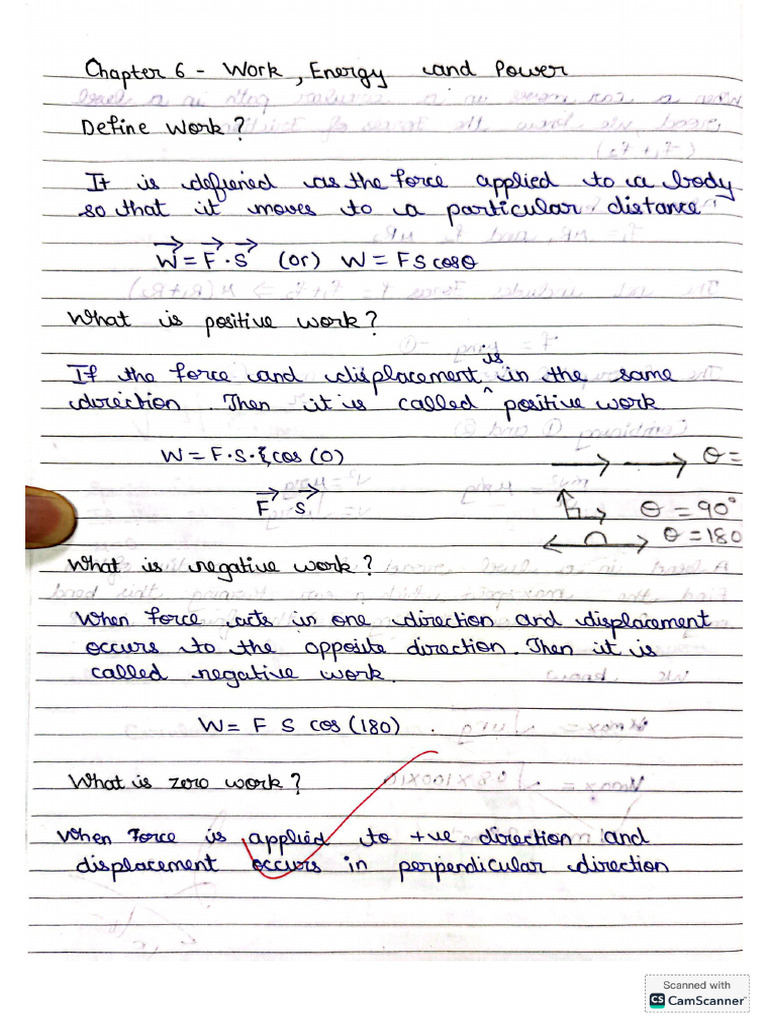 Chapter 6 - Work, Energy and Power
Define Work?
It is defiened as the force applied to a body
so that it moves to a particular distance
W = F . S (or) W = FS cosθ
What is positive work?
is
If the force and displacement ^ in the same
direction. Then it is called positive work
W = F.S.{cos (0)
θ =
F S
θ = 90°
θ = 180
What is negative work?
When force acts in one direction and displacement
occurs to the opposite direction. Then it is
called negative work.
W = F S cos (180)
What is zero work?
When Force is applied to +ve direction and
displacement occurs in perpendicular direction
Scanned with
CS CamScanner